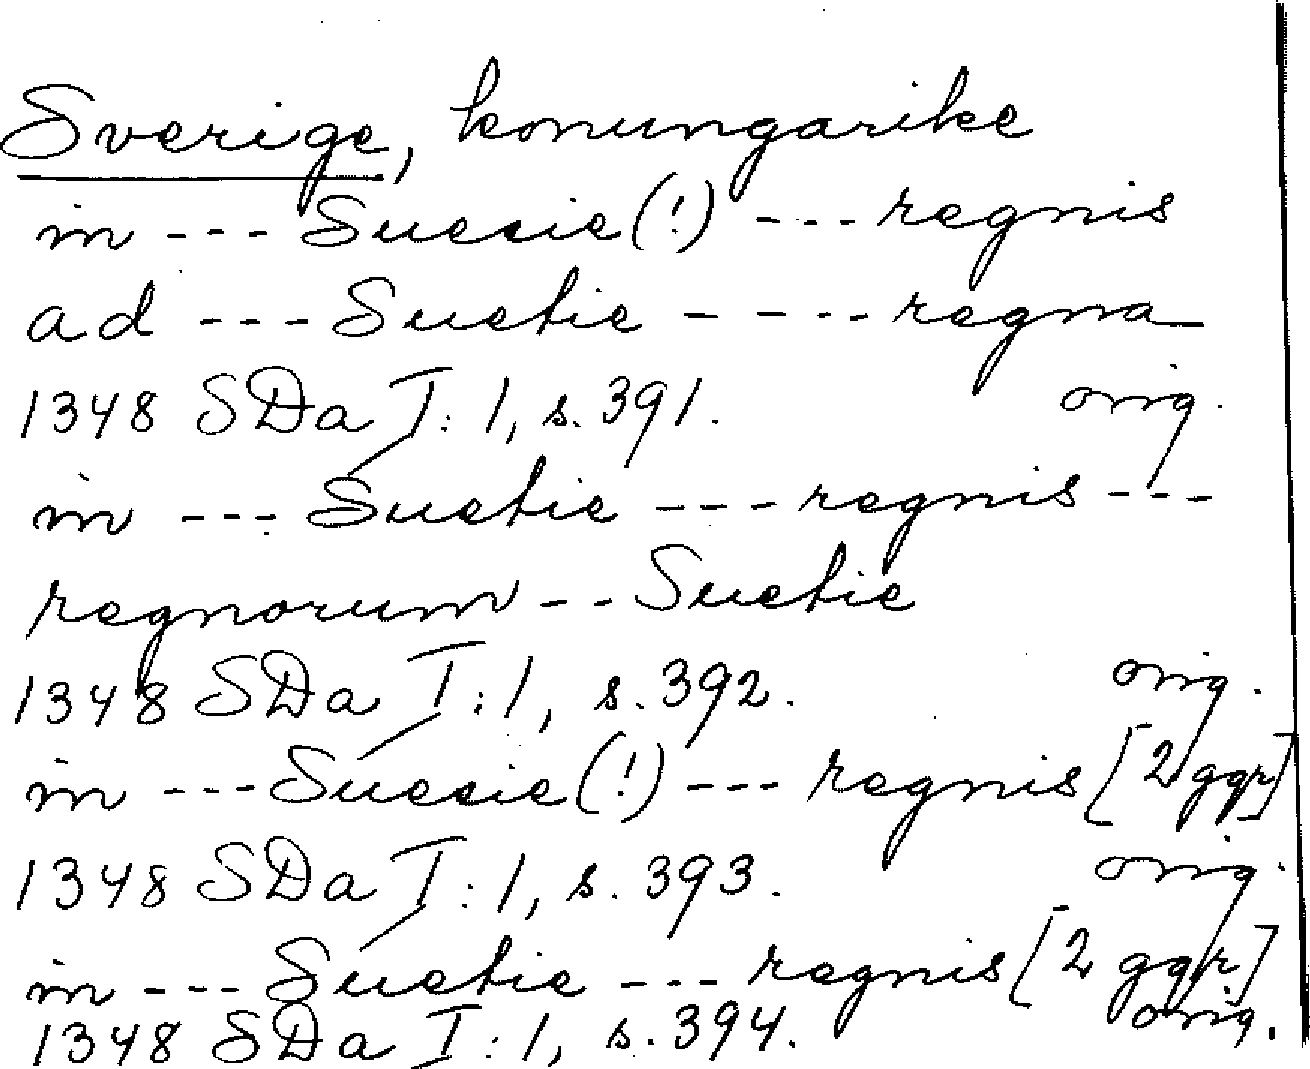 Sverige, konungarike
in --- Suecie(!) --- regnis
ad --- Suetie ---- regna
1348 SDa I:1, s. 391. orig.
in --- Suetie --- regnis ---
regnorum -- Suetie
1348 SDa I:1, s. 392. orig.
in --- Suecie(!) --- regnis [2 ggr]
1348 SDa I:1, s. 393. orig.
in --- Suetie --- regnis [2 ggr]
1348 SDa I:1, s. 394. orig.